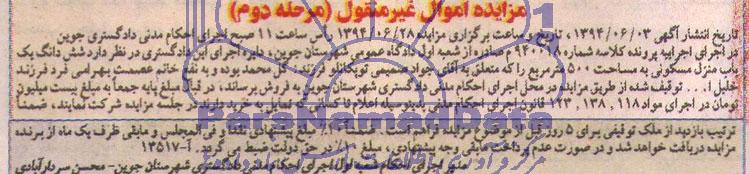 مزایده اموال غیرمنقول (مرحله دوم)
تاریخ انتشار آگهی ۱۳۹۴/۰۶/۰۳ ، تاریخ و ساعت برگزاری مزایده ۱۳۹۴/۰۶/۲۸ راس ساعت ۱۱ صبح اجرای احکام مدنی دادگستری جوین
در اجرای اجراییه پرونده کلاسه شماره صادره از شعبه اول دادگاه عمومی شهرستان جوین، دایره اجرای این دادگستری در نظر دارد شش دانگ یک
باب منزل مسکونی به مساحت ۵۰۰ مترمربع را که متعلق به آقای جواد صمیمی توپکانلو فرزند: گل محمد بوده و به نفع خانم عصمت بهرامی فرد فرزند
خلیل ا... توقیف شده از طریق مزایده در محل اجرای احکام مدنی دادگستری شهرستان جوین به فروش برساند، در قبال مبلغ پایه جمعاً به مبلغ بیست میلیون
تومان در اجرای مواد ۱۱۸، ۱۳۸، ۱۲۳ قانون اجرای احکام مدنی بدینوسیله اعلام تا کسانی که تمایل به خرید دارند در جلسه مزایده شرکت نمایند، ضمناً
ترتیب بازدید از ملک توقیفی برای ۵ روز قبل از موضوع مزایده فراهم است. ضمناً ۱۰٪ مبلغ پیشنهادی نقداً و فی المجلس و مابقی ظرف یک ماه از برنده
مزایده دریافت خواهد شد و در صورت عدم پرداخت مابقی وجه پیشنهادی، مبلغ ۱۰٪ در حق دولت ضبط می گردد. آ-۱۳۵۱۷
مدیر اجرای احکام شعبه اول اجرای احکام مدنی دادگستری شهرستان جوین- محسن سردارآبادی
ParaNamadData